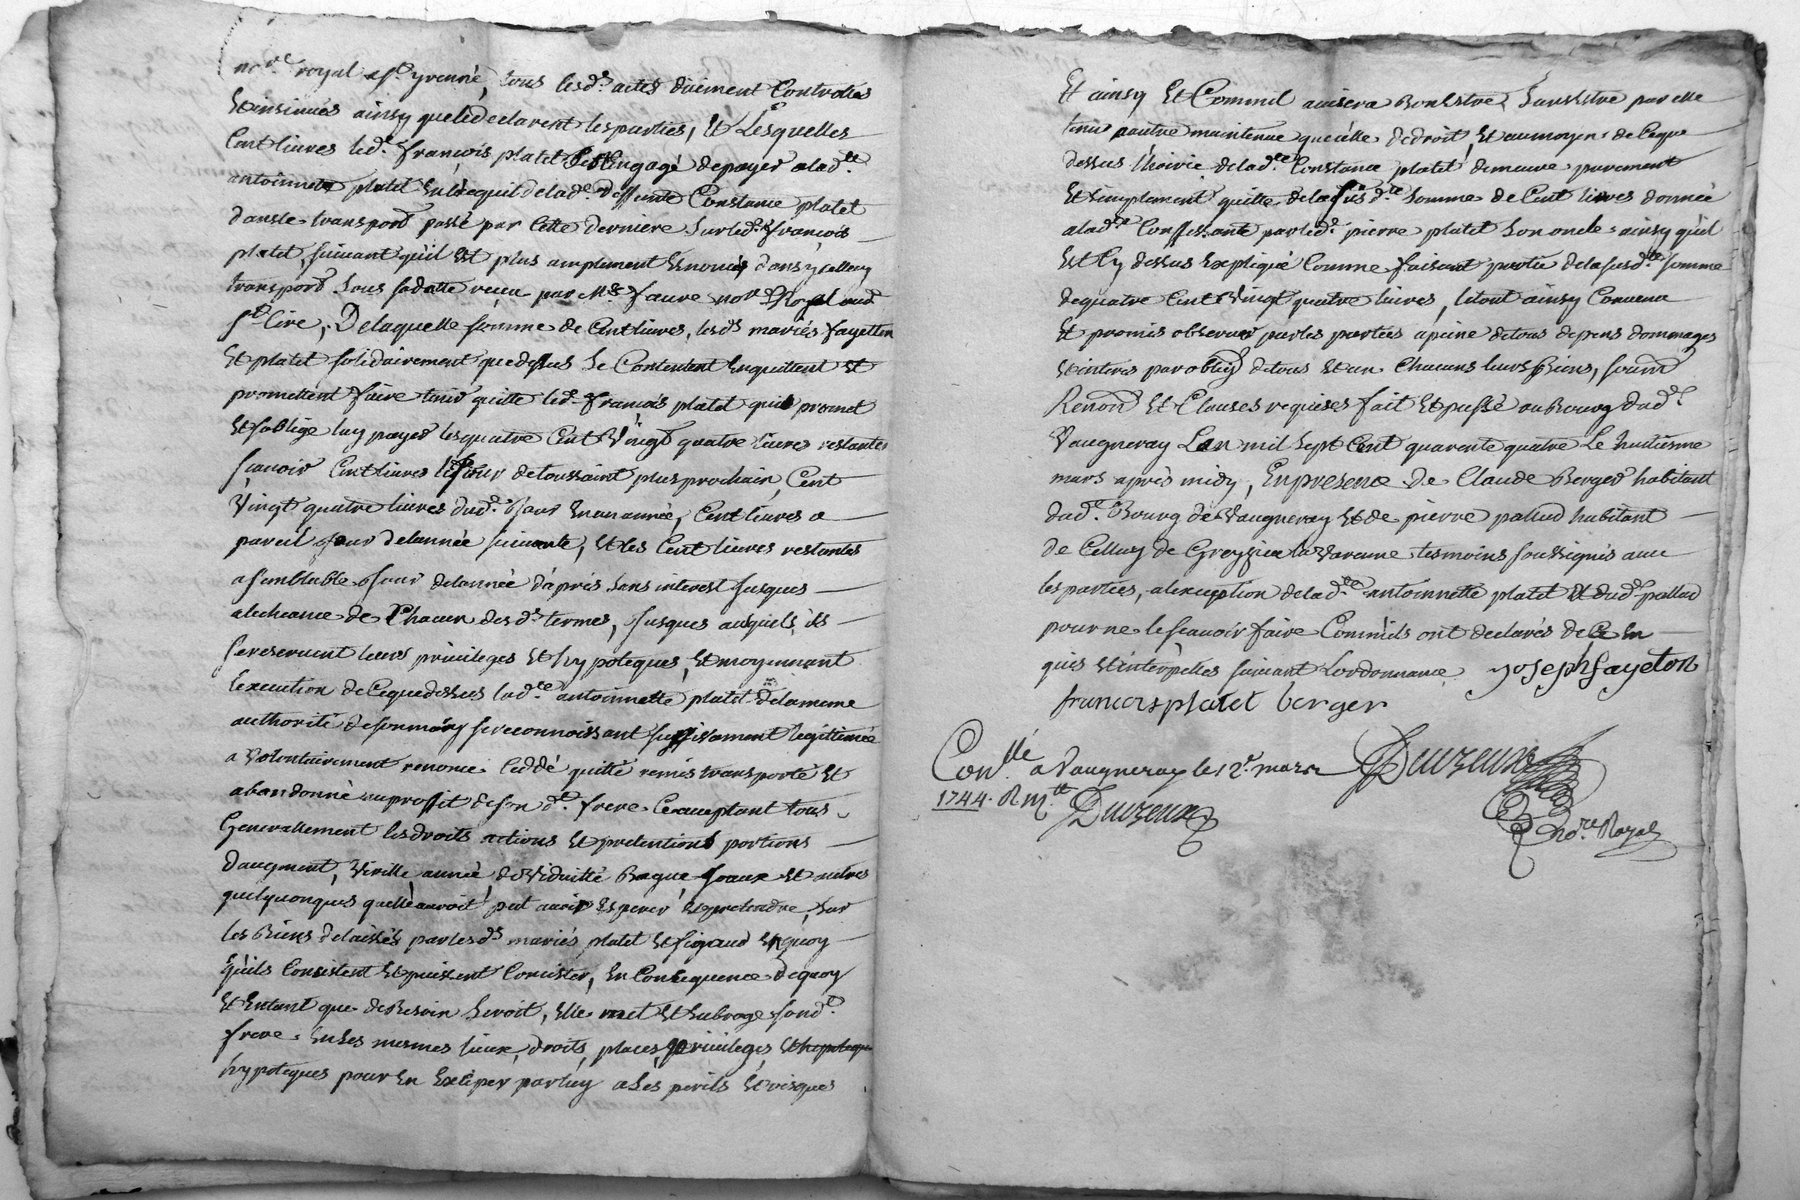 no.re royal a st. yrennée, tous lesd.s actes duement Controllés
Et insinués ainsy queledeclarent lesparties, Et Lesquelles
Cent livres led.t françois platet s'est Engagé depayer alad.te
antoinnette platet En lacquit delad.te deffunte Constance platet
dansle transport passé par Cette derniere Surled.t françois
platet, suivant qu'il Est plus amplement Enoncés dans ycelluy
transport Sous sa datte reçeu par M.e faure no.re Royal aud.t
s.t Cire, Delaquelle somme de Cent livres, lesd.s mariés fayetton
Et platet solidairement quedessus Se Contentent Enquittent Et
promettent faire tenir quitte led.t françois platet qui promet
Et soblige luy payer lesquatre Cent Vingt quatre livres restantes
scavoir Cent livres le jour detoussaint plus prochain, Cent
Vingt quatre livres dud.t Jour En une année, Cent livres a
pareil Jour delannée suivante, Et les Cent livres restantes
a semblable Jour delannée d'après Sans interest Jusques
alecheance de Chacun desd.s termes, Jusques auxquels ils
se reservent leurs privileges Et hypoteques, Et moyennant
lexecution de Cequedessus lad.te antoinnette platet delameme
authorité desonmary se reconnoissant suffisament legitimée
a Volontairement renoncé Ceddé quitté remis transporté Et
abandonné auproffit deson d.t frere Ceacceptant tous
Generallement lesdroits actions Et pretentions portions
daugment, Virille année de Viduitté Bague Joaux Et autres
quelquonques quelle auroit peut avoir Esperer Et pretendre, Sur
les Biens delaissés parlesd.s mariés platet Et figaud Enquoy
Quils Consistent Et puissent Consister, En Consequence dequoy
Et Entant que deBesoin Seroit, Elle met Et Subroge sond.t
frere En Ses mesmes lieux, droits, places, privileges Et hipoteques
hypoteques pour En Exciper par luy a Ses perils Et risques
Et ainsy Et Comme il avisera Bon Estre, Sans Estre par elle
tenu a autre maintenue que celle dedroit, Et aumoyen de Ceque
dessus lhoirie delad.te Constance platet demeure purement
Et simplement quitte delasusd.te Somme de Cent livres donnée
alad.te Confessante parled.t pierre platet Son oncle ainsy quil
Est Cy dessus Expliqué Comme faisant partie delasusd.te somme
dequatre Cent Vingt quatre livres, letout ainsy Convenu
Et promis observer parles parties apeine detous depens dommages
Et interes par oblig.on detous Et un Chacuns leurs Biens, soum.on
Renon.on Et Clauses requises fait Et passé auBourg dud.t
Vaugneray Lan mil sept Cent quarente quatre Le huitieme
mars après midy, En presence de Claude Berger habitant
dud.t Bourg de Vaugneray Et de pierre pallud habitant
de Celluy de Greysieu la Varenne tesmoins soussignés avec
lesparties, alexception delad.te antoinnette platet Et dud.t pallud
pour ne le scavoir faire Commils ont declarés de Ce En
quis Et interpelles suivant Lordonnance Joseph fayeton
francois platet berger
Con.llé a Vaugneray le 12.e mars
1744. R
Duvzeux
Duvzeux
no.re Royal